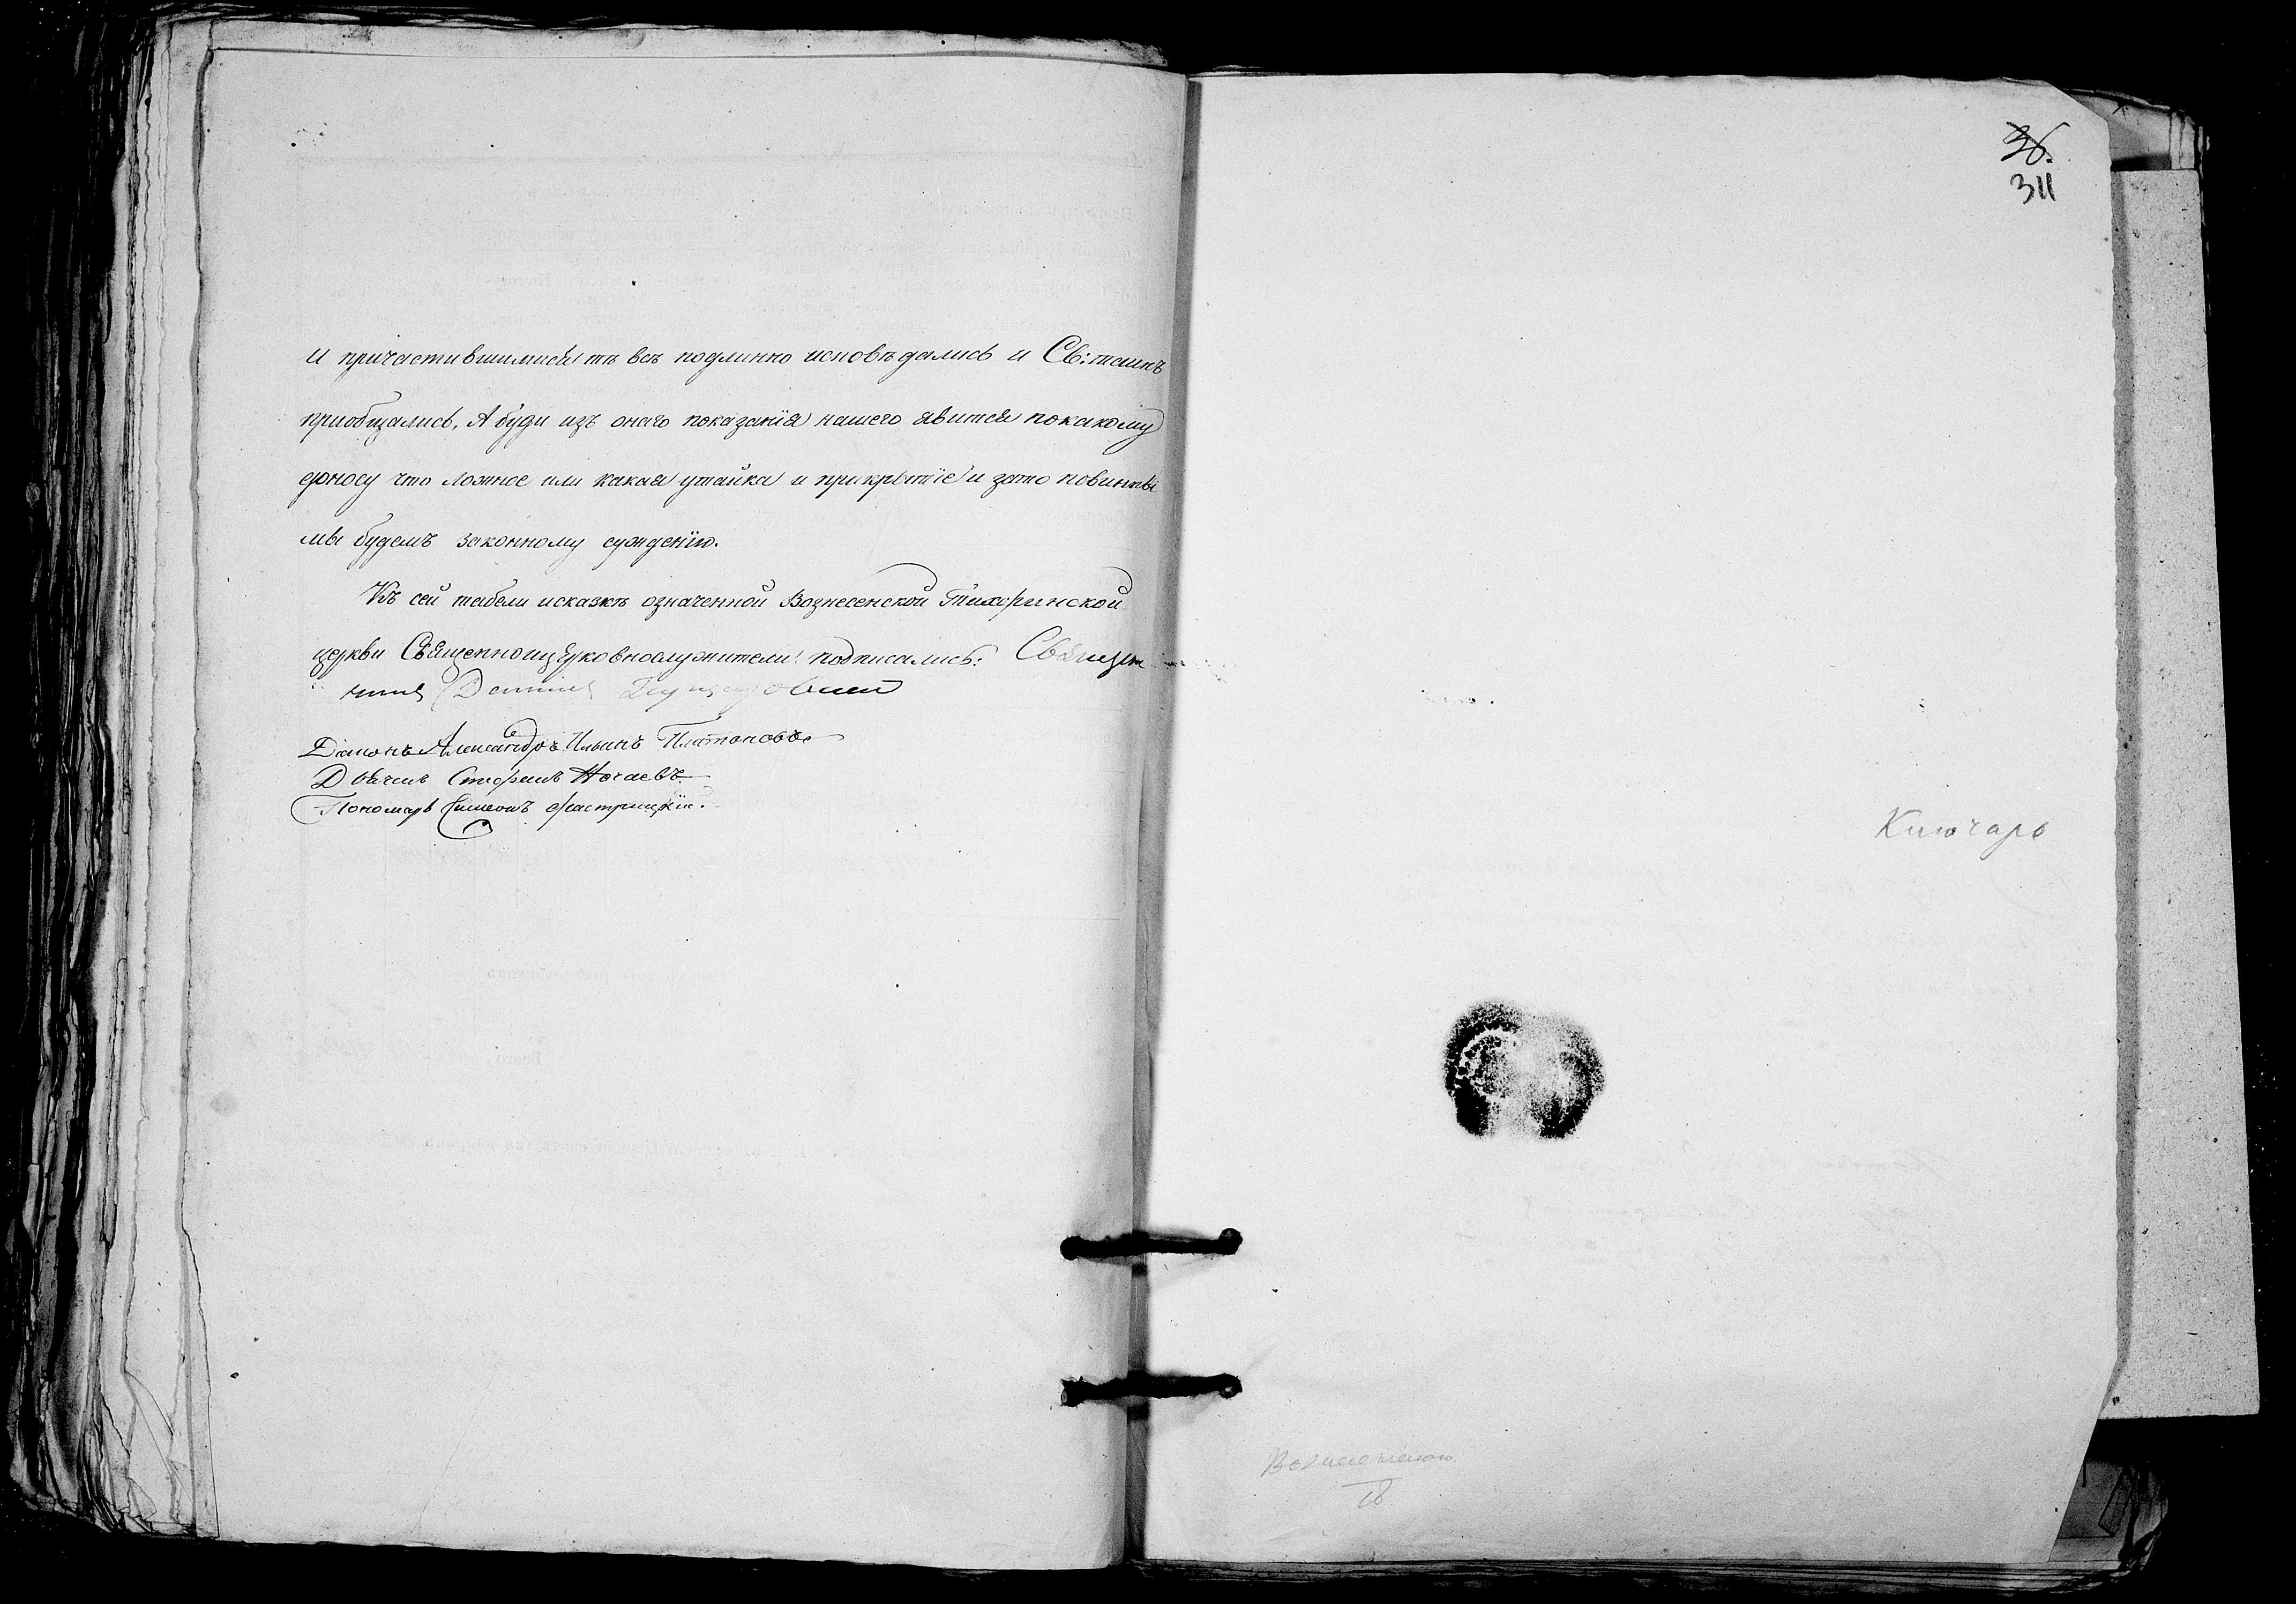 и причастившимися тѣ всѣ подлинно исповѣдались и Св: таинъ
приобщались, А буди изъ онаго показанія нашего явится покакому
доносу что ложное или какая утайка и прикрытіе и зато повинны
мы будемъ законному сужденію.
Къ сей табели исказкѣ означенной Вознесенской
церкви Священноицерковнослужители подписались: Священ
никъ
Діаконъ Александръ Ильинъ Платоновъ
Дьячекъ Стефанъ Нечаевъ
Пономарь Симеонъ
36.
311
Ключарь
18